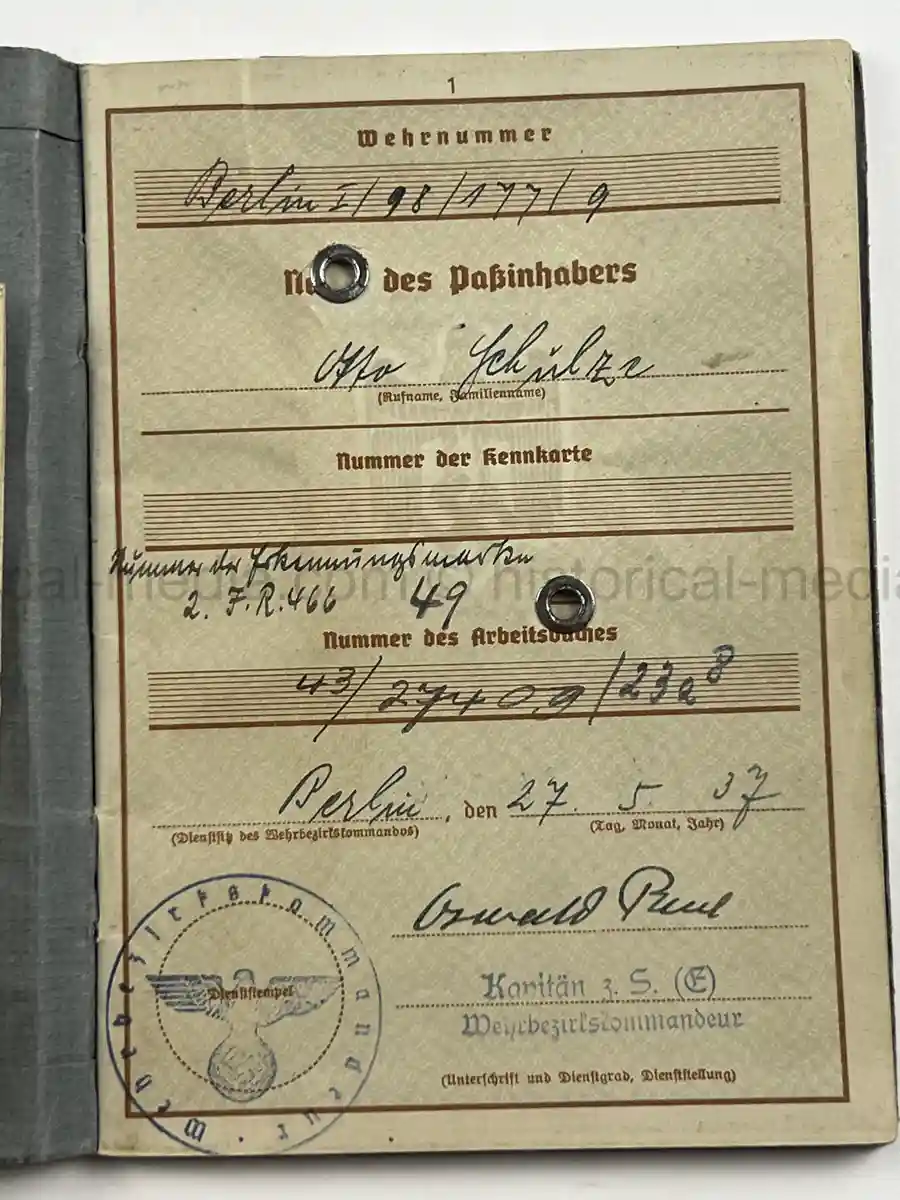 1
Wehrnummer
Berlin I/98/177/9
des Paßinhabers
Otto Schulze
(Rufname, Familienname)
Nummer der Kennkarte
Nummer der Erkennungsmarke
historical-media
2. F.R. 466 49
Nummer des Arbeitsbuches
43/27409/23a8
Berlin, den 27. 5. 37
(Dienstsitz des Wehrbezirkskommandos) (Tag, Monat, Jahr)
Oswald
Wehrbezirkskommandeur
Dienststempel
Kapitän z. S. (E)
Wehrbezirkskommandeur
(Unterschrift und Dienstgrad, Dienststellung)